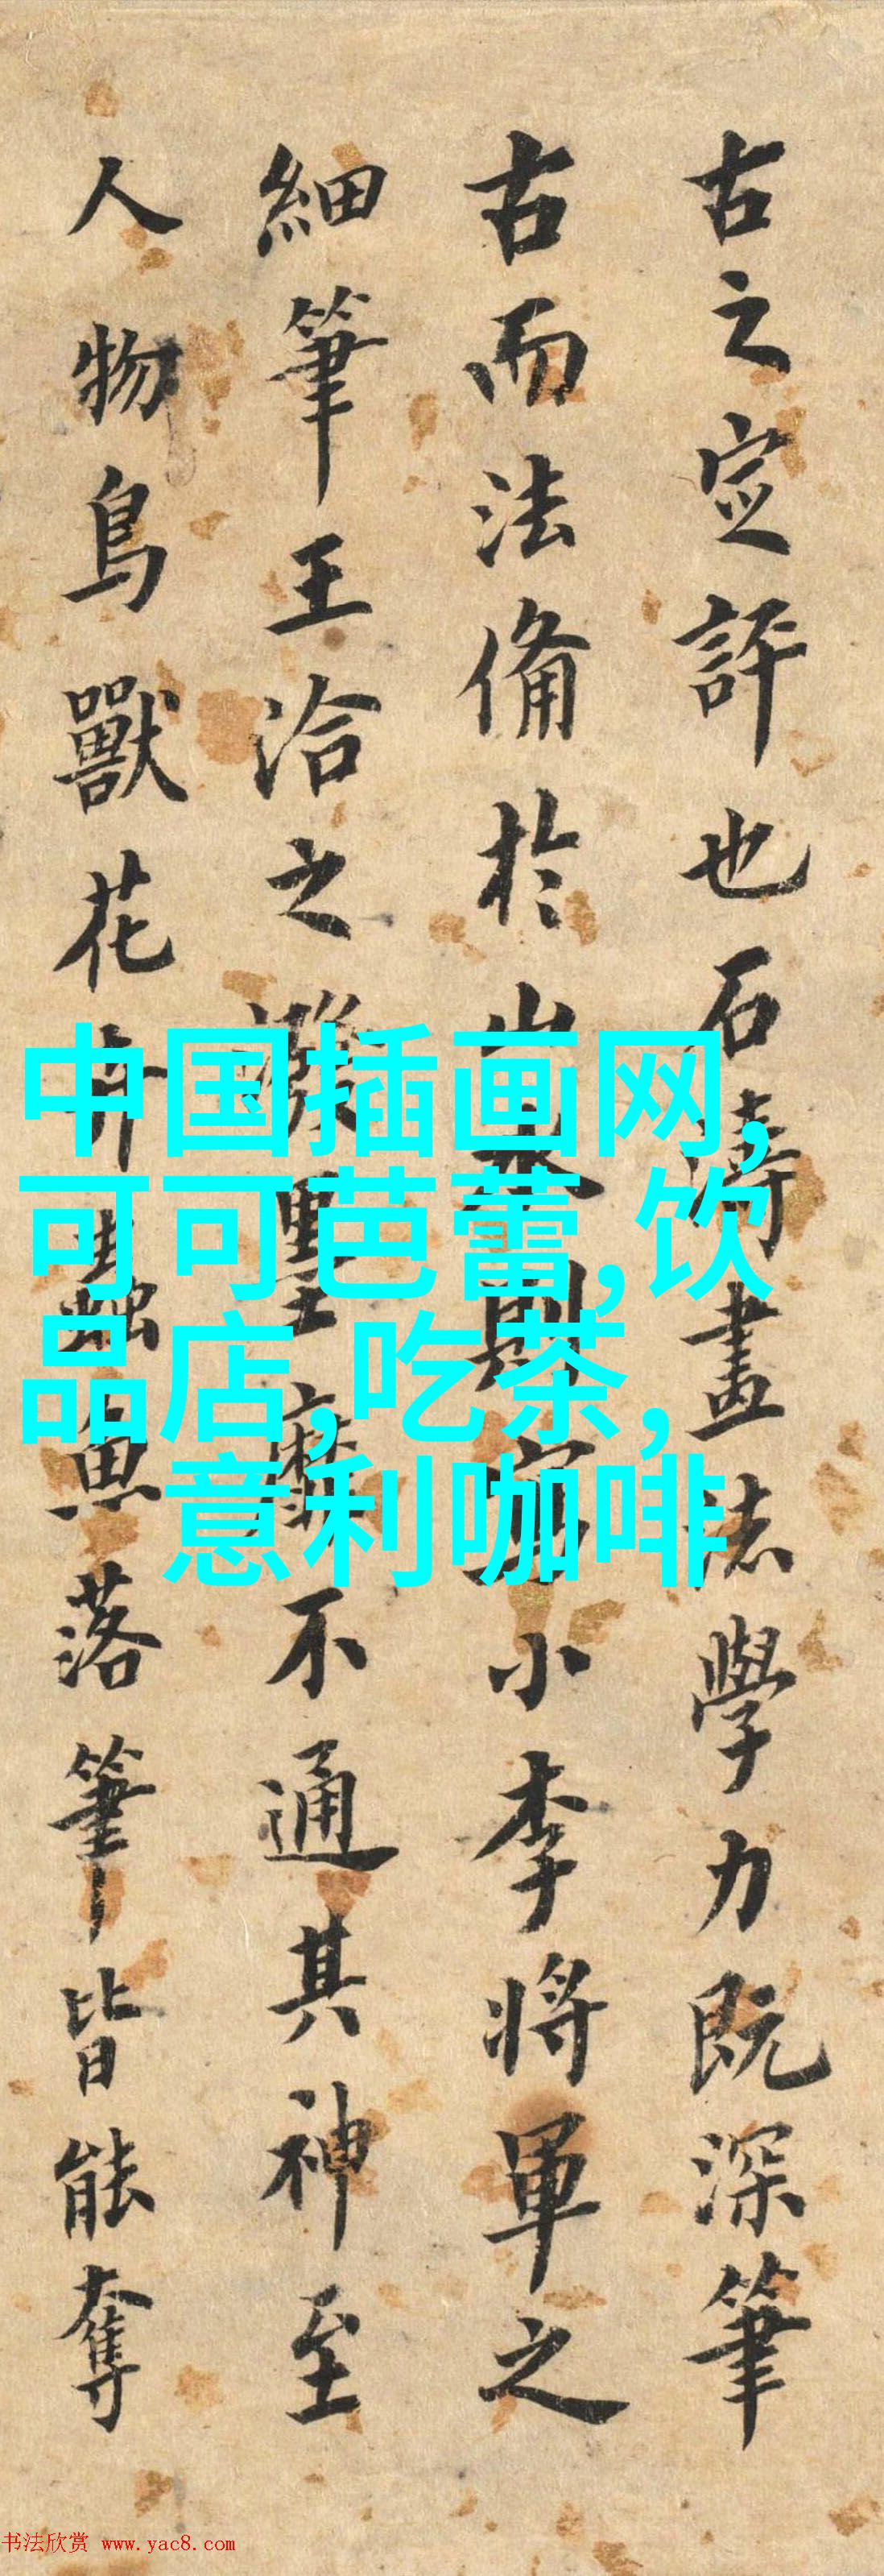 古之定評也石濤畫法學力既深筆
古而法備於山水則寫小李將軍之
細筆王洽之潑墨靡不通其神至
人物鳥獸花卉蟲魚落筆皆能奪
中国插画网,
可可芭蕾,饮
品店,吃茶,
意利咖啡
书法欣赏 www.yac8.com